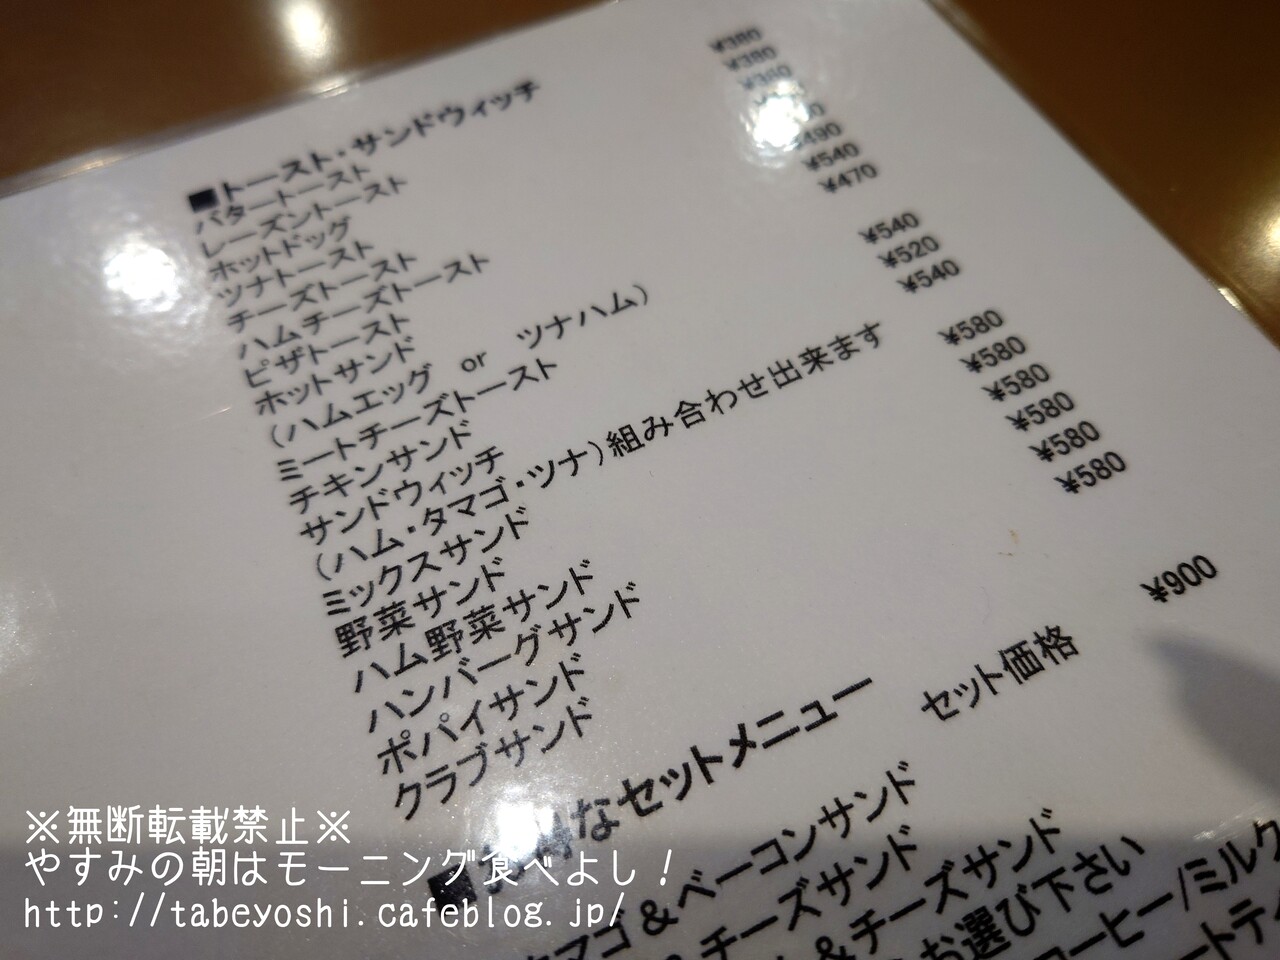 ■トースト・サンドウィッチ
バタートースト
レーズントースト
ホットドッグ
ツナトースト
チーズトースト
ハムチーズトースト
ピザトースト
ホットサンド
(ハムエッグ or ツナハム)
ミートチーズトースト
チキンサンド
サンドウィッチ
(ハム・タマゴ・ツナ)組み合わせ出来ます
ミックスサンド
野菜サンド
ハム野菜サンド
ハンバーグサンド
ポパイサンド
クラブサンド
¥380
¥380
¥380
¥490
¥540
¥470
¥540
¥520
¥540
¥580
¥580
¥580
¥580
¥580
¥580
なセットメニュー セット価格 ¥900
タマゴ&ベーコンサンド
&チーズサンド
&チーズサンド
お選び下さい
コーヒー/ミルク
※無断転載禁止※
やすみの朝はモーニング食べよし！
http://tabeyoshi.cafeblog.jp/